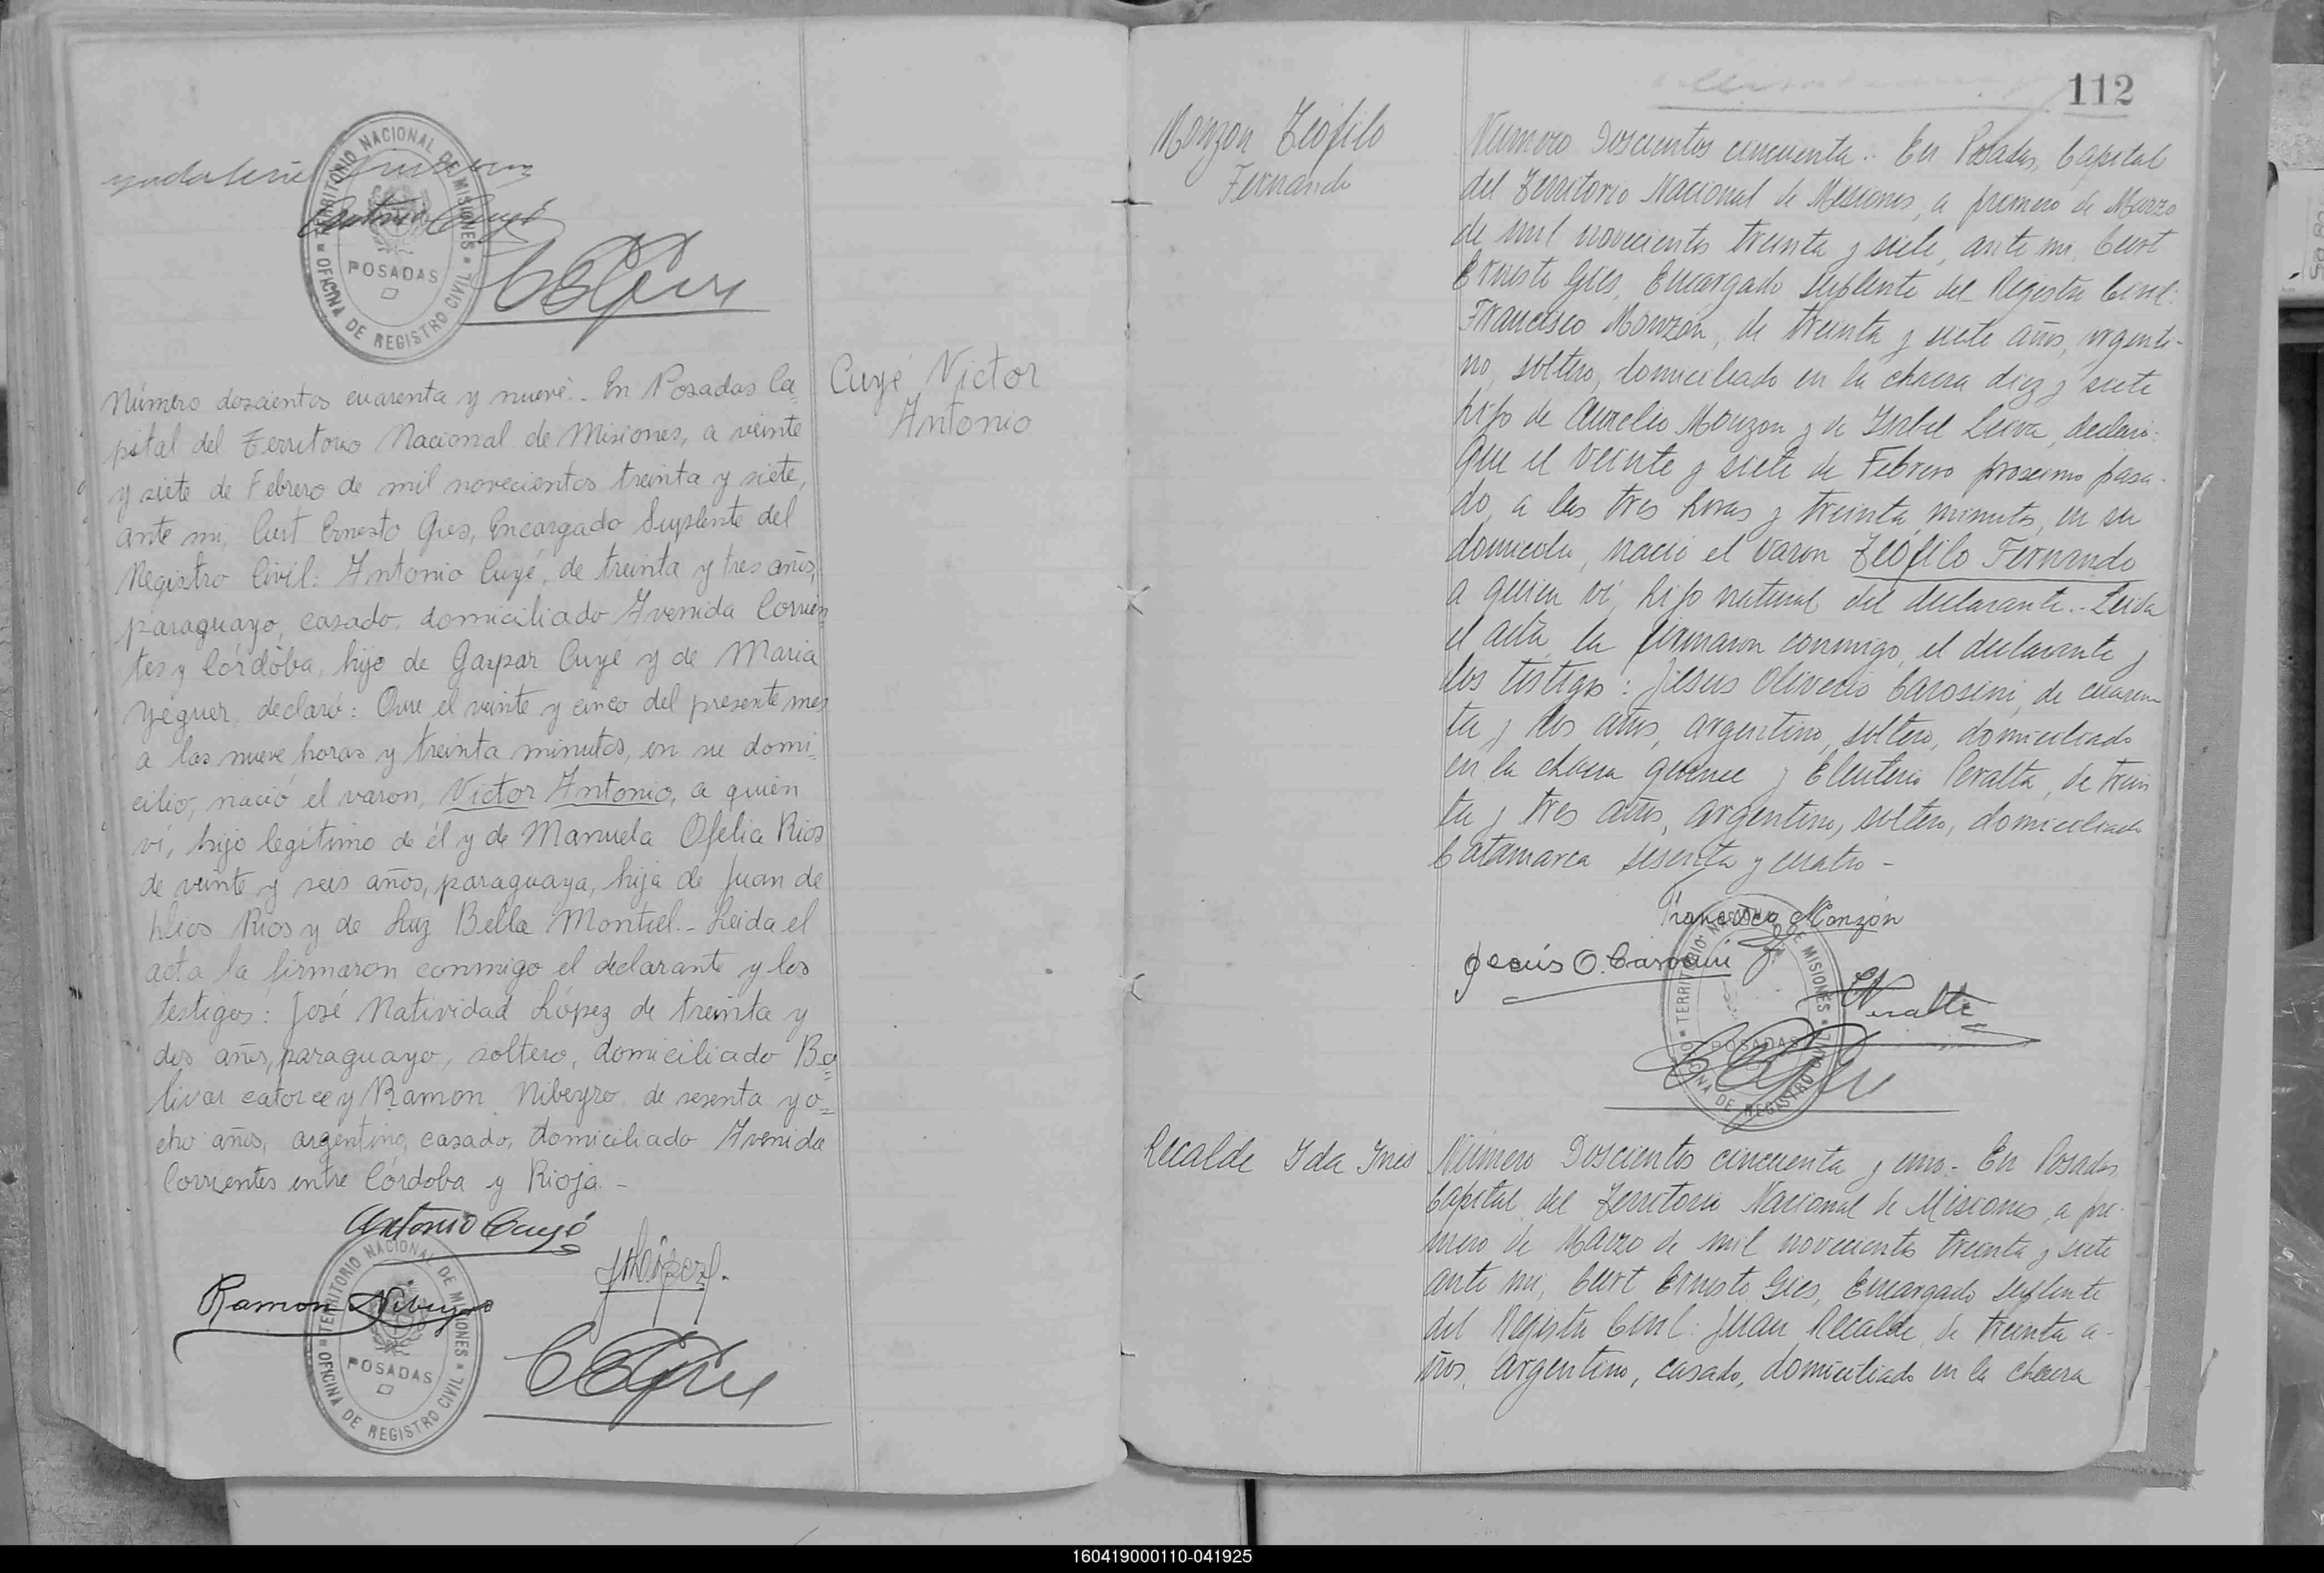 TERRITORIO NACIONAL DE MISIONES
POSADAS
OFICINA DE REGISTRO CIVIL
Antonio Cuyé
Cuyé Victor
Antonio
Número doscientos cuarenta y nueve.- En Posadas Ca=
pital del Territorio Nacional de Misiones, a veinte
y siete de Febrero de mil novecientos treinta y siete,
ante mi, Curt Ernesto Gies, Encargado Suplente del
Registro Civil: Antonio Cuyé, de treinta y tres años,
paraguayo, casado, domiciliado Avenida Corrien
tes y Córdoba, hijo de Gaspar Cuyé y de Maria
Yeguer, declaró: Que el veinte y cinco del presente mes
a las nueve horas y treinta minutos, en su domi-
cilio, nació el varon, Victor Antonio, a quien
ví, hijo legítimo de él y de Manuela Ofelia Rios
de veinte y seis años, paraguaya, hija de Juan de
Dios Rios y de Luz Bella Montiel.- Leida el
acta la firmaron conmigo el declarante y los
testigos: José Natividad López de treinta y
dos años, paraguayo, soltero, domiciliado Bo=
livar catorce y Ramon Nibeyro, de sesenta y o=
cho años, argentino, casado, domiciliado Avenida
Corrientes entre Córdoba y Rioja.-
Antonio Cuyé
JNLópez
Ramon Nibeyro
TERRITORIO NACIONAL DE MISIONES
POSADAS
OFICINA DE REGISTRO CIVIL
112
Monzon Teófilo
Fernando
Número Doscientos cincuenta.- En Posadas, Capital
del Territorio Nacional de Misiones, a primero de Marzo
de mil novecientos treinta y siete, ante mi, Curt
Ernesto Gies, Encargado suplente del Registro Civil:
Francisco Monzón, de treinta y siete años, argenti-
no, soltero, domiciliado en la chacra diez y siete
hijo de Aurelio Monzon y de Isabel Leiva, declaró:
Que el veinte y siete de Febrero proximo pasa-
do, a las tres horas y treinta minutos, en su
domicilio, nació el varon Teófilo Fernando
a quien ví, hijo natural del declarante.- Leida
el acta, la firmaron conmigo, el declarante y
los testigos: Jesus Oliverio Carosini, de cuaren
ta y dos años, argentino, soltero, domiciliado
en la chacra quince y Eleuterio Peralta, de trein
ta y tres años, argentino, soltero, domiciliado
Catamarca sesenta y cuatro -
Francisco Monzón
Jesús O. Carosini
EPeralta
TERRITORIO NACIONAL DE MISIONES
POSADAS
OFICINA DE REGISTRO CIVIL
Recalde Ida Ines
Número Doscientos cincuenta y uno.- En Posadas,
Capital del Territorio Nacional de Misiones, a pri-
mero de Marzo de mil novecientos treinta y siete
ante mi, Curt Ernesto Gies, Encargado suplente
del Registro Civil: Juan Recalde, de treinta a-
ños, argentino, casado, domiciliado en la chacra
160419000110-041925